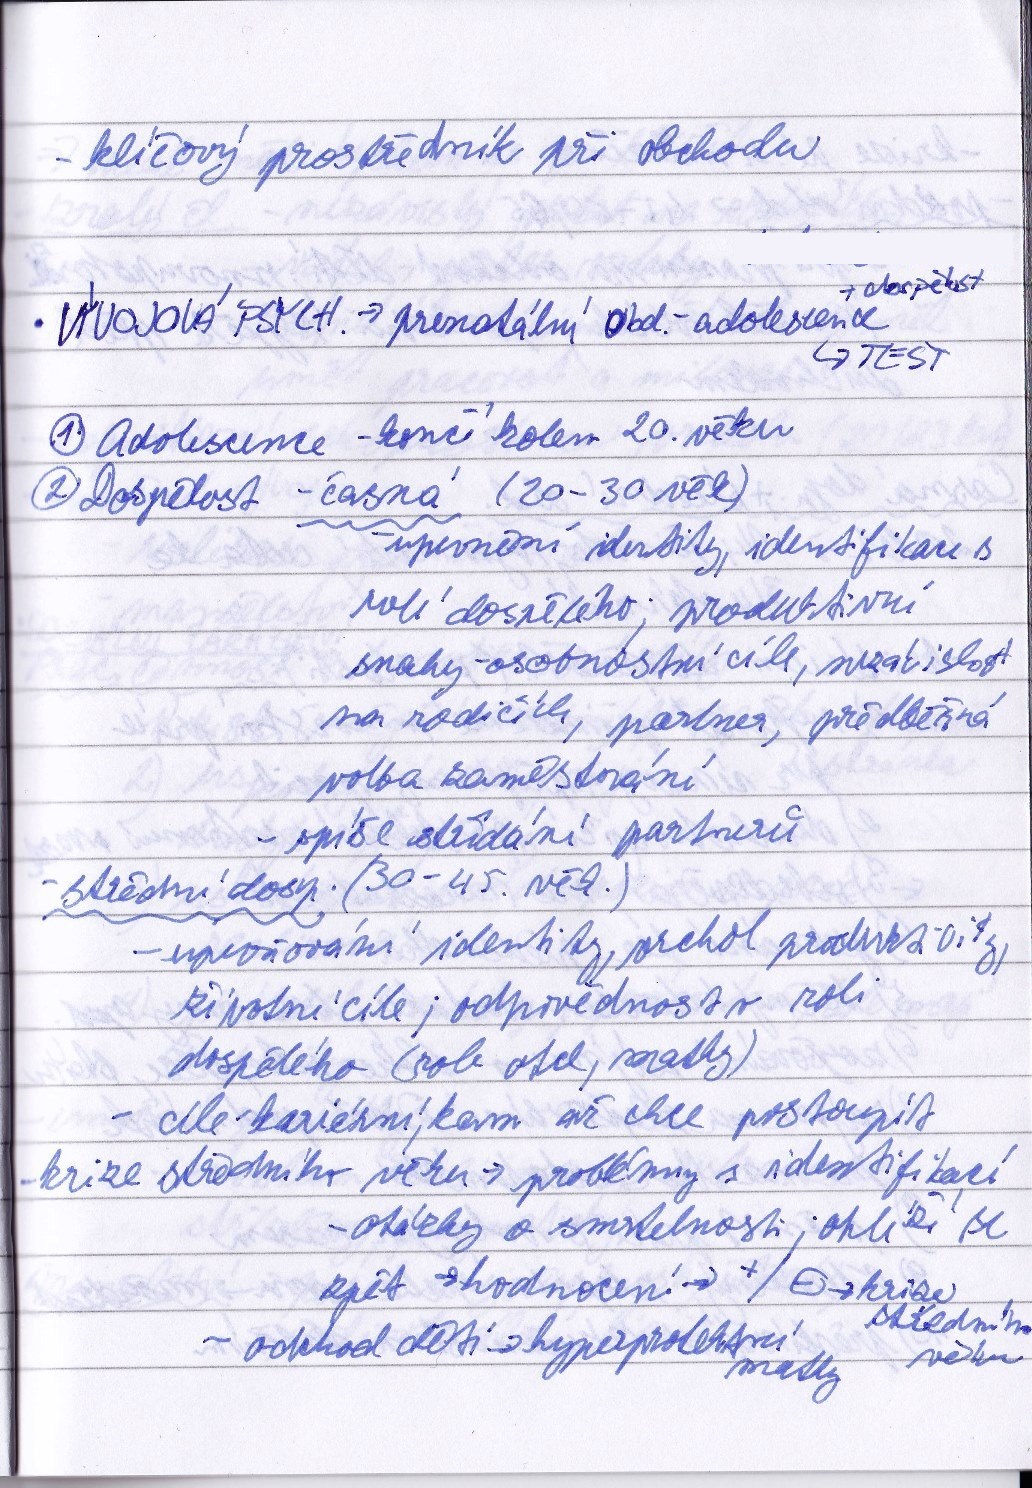 - klíčový prostředník při obchodu
+ dospělost
• VÝVOJOVÁ PSYCH. → prenatální obd. - adolescence
↳ TEST
① Adolescence - končí kolem 20. věku
② Dospělost - časná (20-30 věk)
- upevnění identity, identifikace s
rolí dospělého; produktivní
snahy - osobnostní cíle, nezávislost
na rodičích, partner, předběžná
volba zaměstnání
- spíše střídání partnerů
- střední dosp. (30-45. věk.)
- upevňování identity, vrchol produktivity,
životní cíle; odpovědnost v roli
dospělého (role otce, matky)
- cíle kariérní, kam až chce postoupit
- krize středního věku → problémy s identifikací
- otázky o smrtelnosti; ohlíží se
zpět → hodnocení → + / ⊖ → krize
středního
věku
- odchod dětí → hyperprotektivní
matky